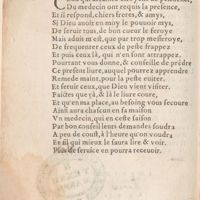 Du medecin ont requis la presence,
Et il respond, chiers freres, & amys,
Si Dieu auoit en moy le pouuoir mys,
De seruir tous, de bon cueur le feroye
Mais aduis m'est, que par trop mesferoye,
De frequenter ceux de peste frappez
Et puis ceux là, qui n'en sont attrappez.
Pourtant vous donne, & conseille de prēdre
Ce present liure, auquel pourrez apprendre
Remede maint, pour la peste euiter.
Et seruir ceux, que Dieu vient visiter.
Faictes que çà, & là le liure coure,
Et qu'en ma place, au besoing vous secoure
Ainsi aura chascun en sa maison
Vn medecin, qui en ceste saison
Par bon conseil leurs demandes soudra
A peu de coust, à l'heure qu'on voudra
Et fil qui mieux le saura lire & voir.
Plus de seruice en pourra receuoir.